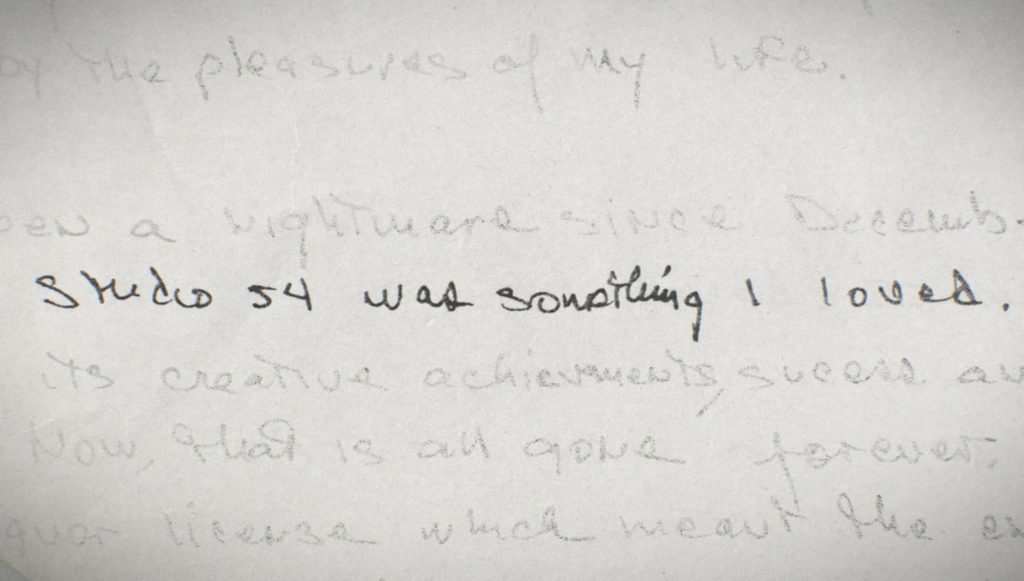 by the pleasures of my life.
a nightmare since Decemb
Studio 54 was something I loved.
its creative achievments, sucess
Now, that is all gone forever.
license which meant the